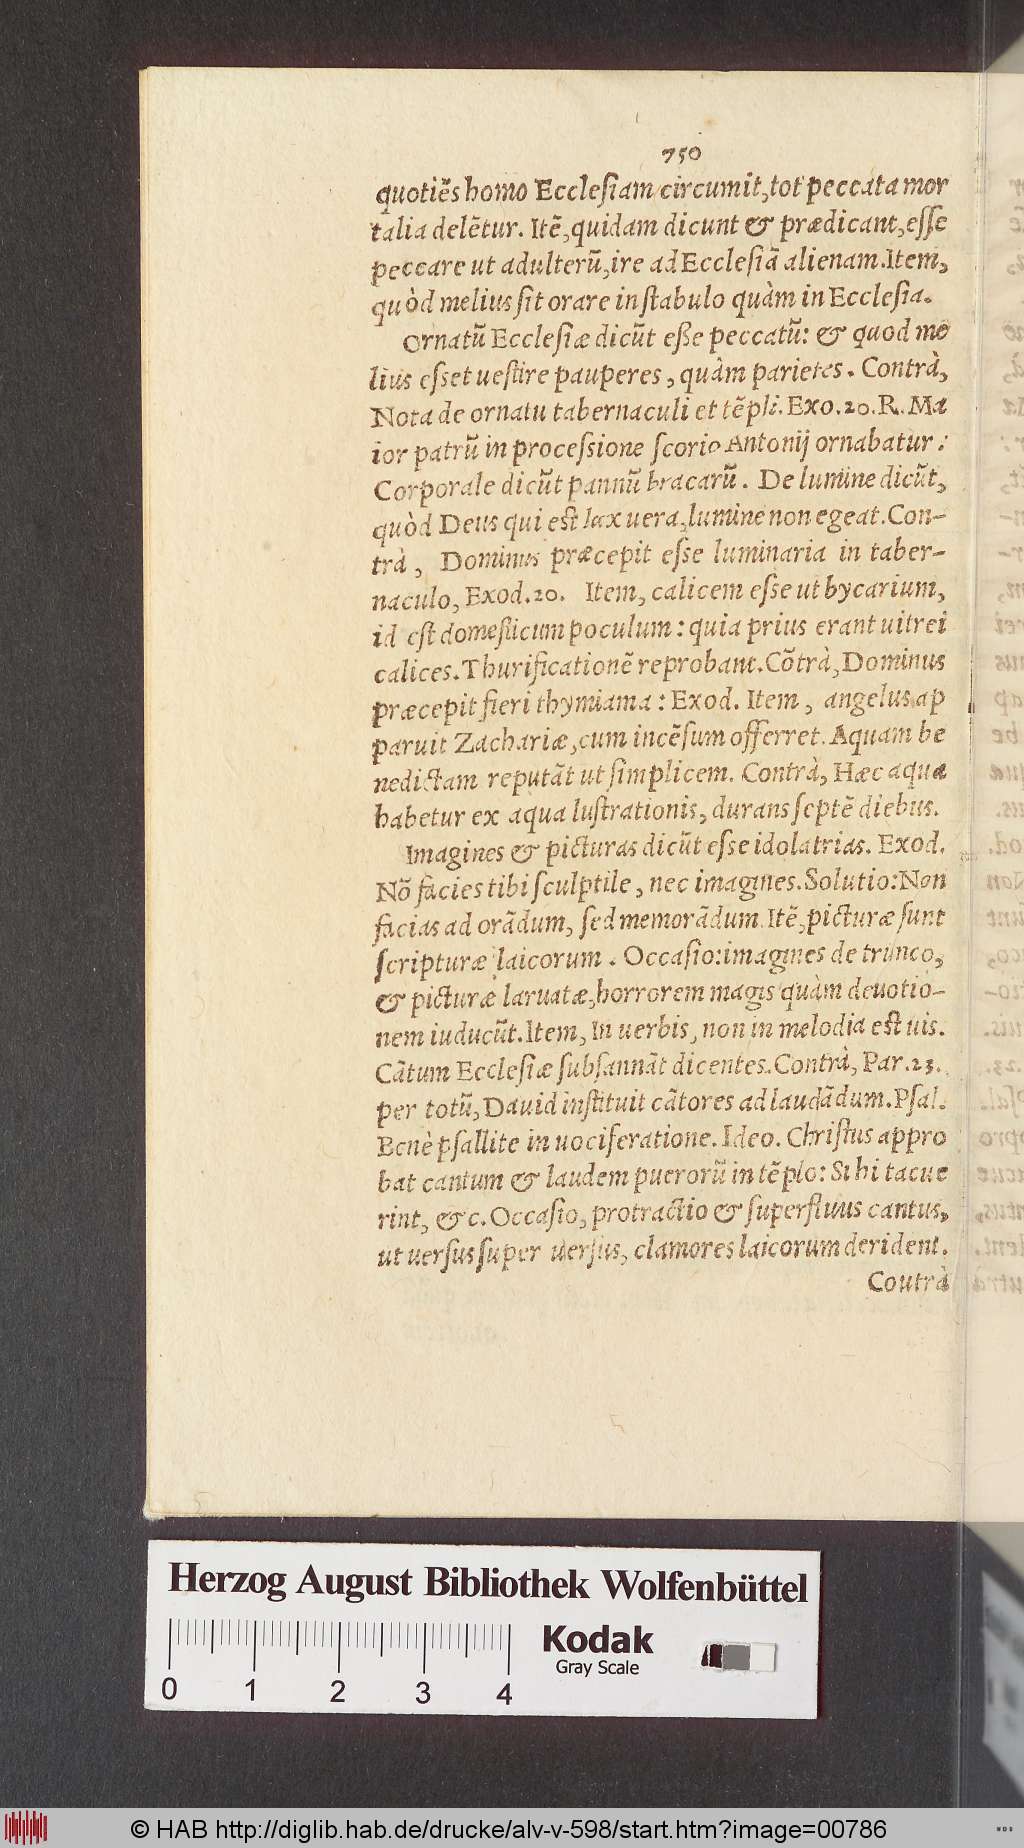 750
quotiẽs homo Ecclesiam circumit, tot peccata mor
talia delẽtur. Itẽ, quidam dicunt & prædicant, esse
peccare ut adulterũ, ire ad Ecclesiã alienam. Item,
quòd melius sit orare in stabulo quàm in Ecclesia.
Ornatũ Ecclesiæ dicũt eße peccatũ: & quod me
lius esset uestire pauperes, quàm parietes. Contrà,
Nota de ornatu tabernaculi et tẽpli. Exo. 20. R. Ma
ior patrũ in processione scorio Antonij ornabatur:
Corporale dicũt pannũ bracarũ. De lumine dicũt,
quòd Deus qui est lux uera, lumine non egeat. Con-
trà, Dominus præcepit esse luminaria in taber-
naculo, Exod. 20. Item, calicem esse ut bycarium,
id est domesticum poculum: quia prius erant uitrei
calices. Thurificationẽ reprobant. Cõtrà, Dominus
præcepit fieri thymiama: Exod. Item, angelus ap
paruit Zachariæ, cum incẽsum offerret. Aquam be
nedictam reputãt ut simplicem. Contrà, Hæc aqua
habetur ex aqua lustrationis, durans septẽ diebus.
Imagines & picturas dicũt esse idolatrias. Exod.
Nõ facies tibi sculptile, nec imagines. Solutio: Non
facias ad orãdum, sed memorãdum. Itẽ, picturæ sunt
scripturæ laicorum. Occasio: imagines de trunco,
& picturæ laruatæ, horrorem magis quàm deuotio-
nem iuducũt. Item, In uerbis, non in melodia est uis.
Cãtum Ecclesiæ subsannãt dicentes. Contrà, Par. 23.
per totũ, Dauid instituit cãtores ad laudãdum. Psal.
Benè psallite in uociferatione. Ideo. Christus appro
bat cantum & laudem puerorũ in tẽplo: Si hi tacue
rint, &c. Occasio, protractio & superfluus cantus,
ut uersus super uersus, clamores laicorum derident.
Coutrà
Herzog August Bibliothek Wolfenbüttel
Kodak
Gray Scale
0 1 2 3 4
© HAB http://diglib.hab.de/drucke/alv-v-598/start.htm?image=00786